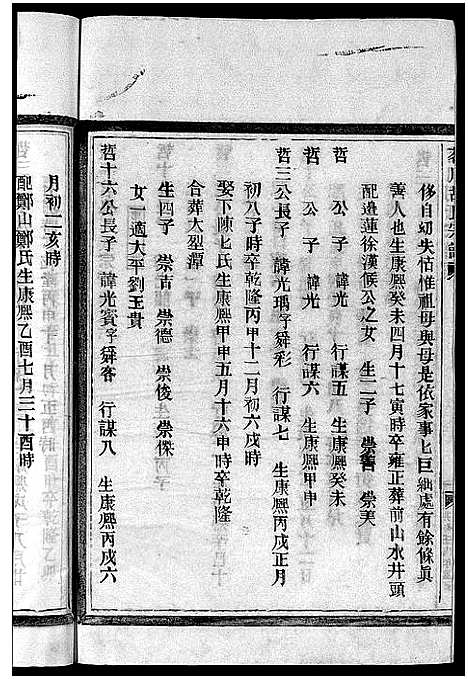 侈自幼失怙惟祖母與母是依家事匕巨絀處有餘條眞
善人也生康熙癸未四月十七寅時卒雍正葬前山水井頭
配邉蓮徐漢候公之女 生二子 崇耆 崇美
哲 公子 諱光 行謀五 生康熙癸未
哲 公子 諱光 行謀六 生康熙甲申
哲三公長子 諱光瑀字舜彩 行謀七 生康熙丙戌正月
初八子時卒乾隆丙申十二月初六戌時
娶下陳匕氏生康熙甲申五月十六申時卒乾隆
合葬大型潭
生四子 崇古 崇德 崇俊 崇傑
女一適大平劉玉貴
哲十六公長子 諱光賓字舜客 行謀八 生康熙丙戌六
月初二亥時
配鄭山鄭氏生康熙乙酉七月三十酉時